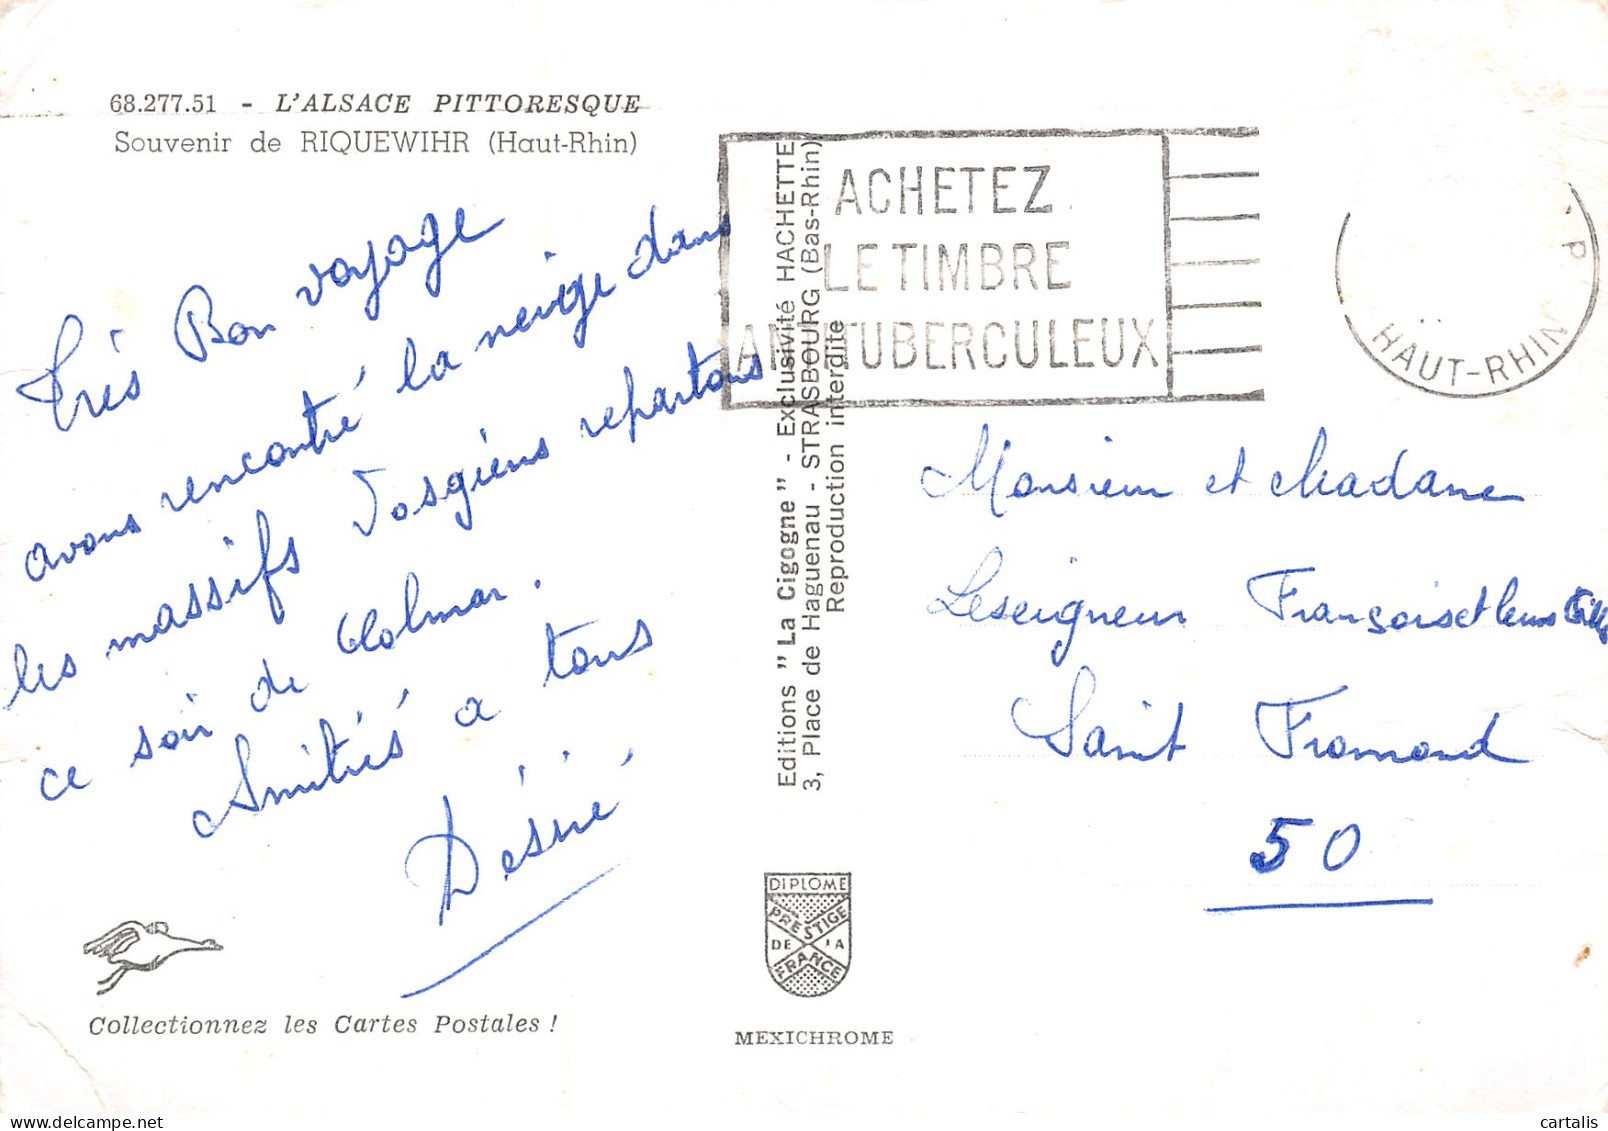 68.277.51 - L'ALSACE PITTORESQUE
Souvenir de RIQUEWIHR (Haut-Rhin)
Très Bon voyage
avons rencontré la neige dans
les massifs Vosgiens repartons
ce soir de Colmar.
Amitiés a tous
Désiré
Collectionnez les Cartes Postales !
Editions "La Cigogne" - Exclusivité HACHETTE
3, Place de Haguenau - STRASBOURG (Bas-Rhin)
Reproduction interdite
DIPLOME
PRESTIGE
DE LA
FRANCE
MEXICHROME
ACHETEZ
LE TIMBRE
ANTITUBERCULEUX
P
HAUT-RHIN
Monsieur et Madame
Leseigneur Françoise et leurs
Saint Fromond
50
cartalis